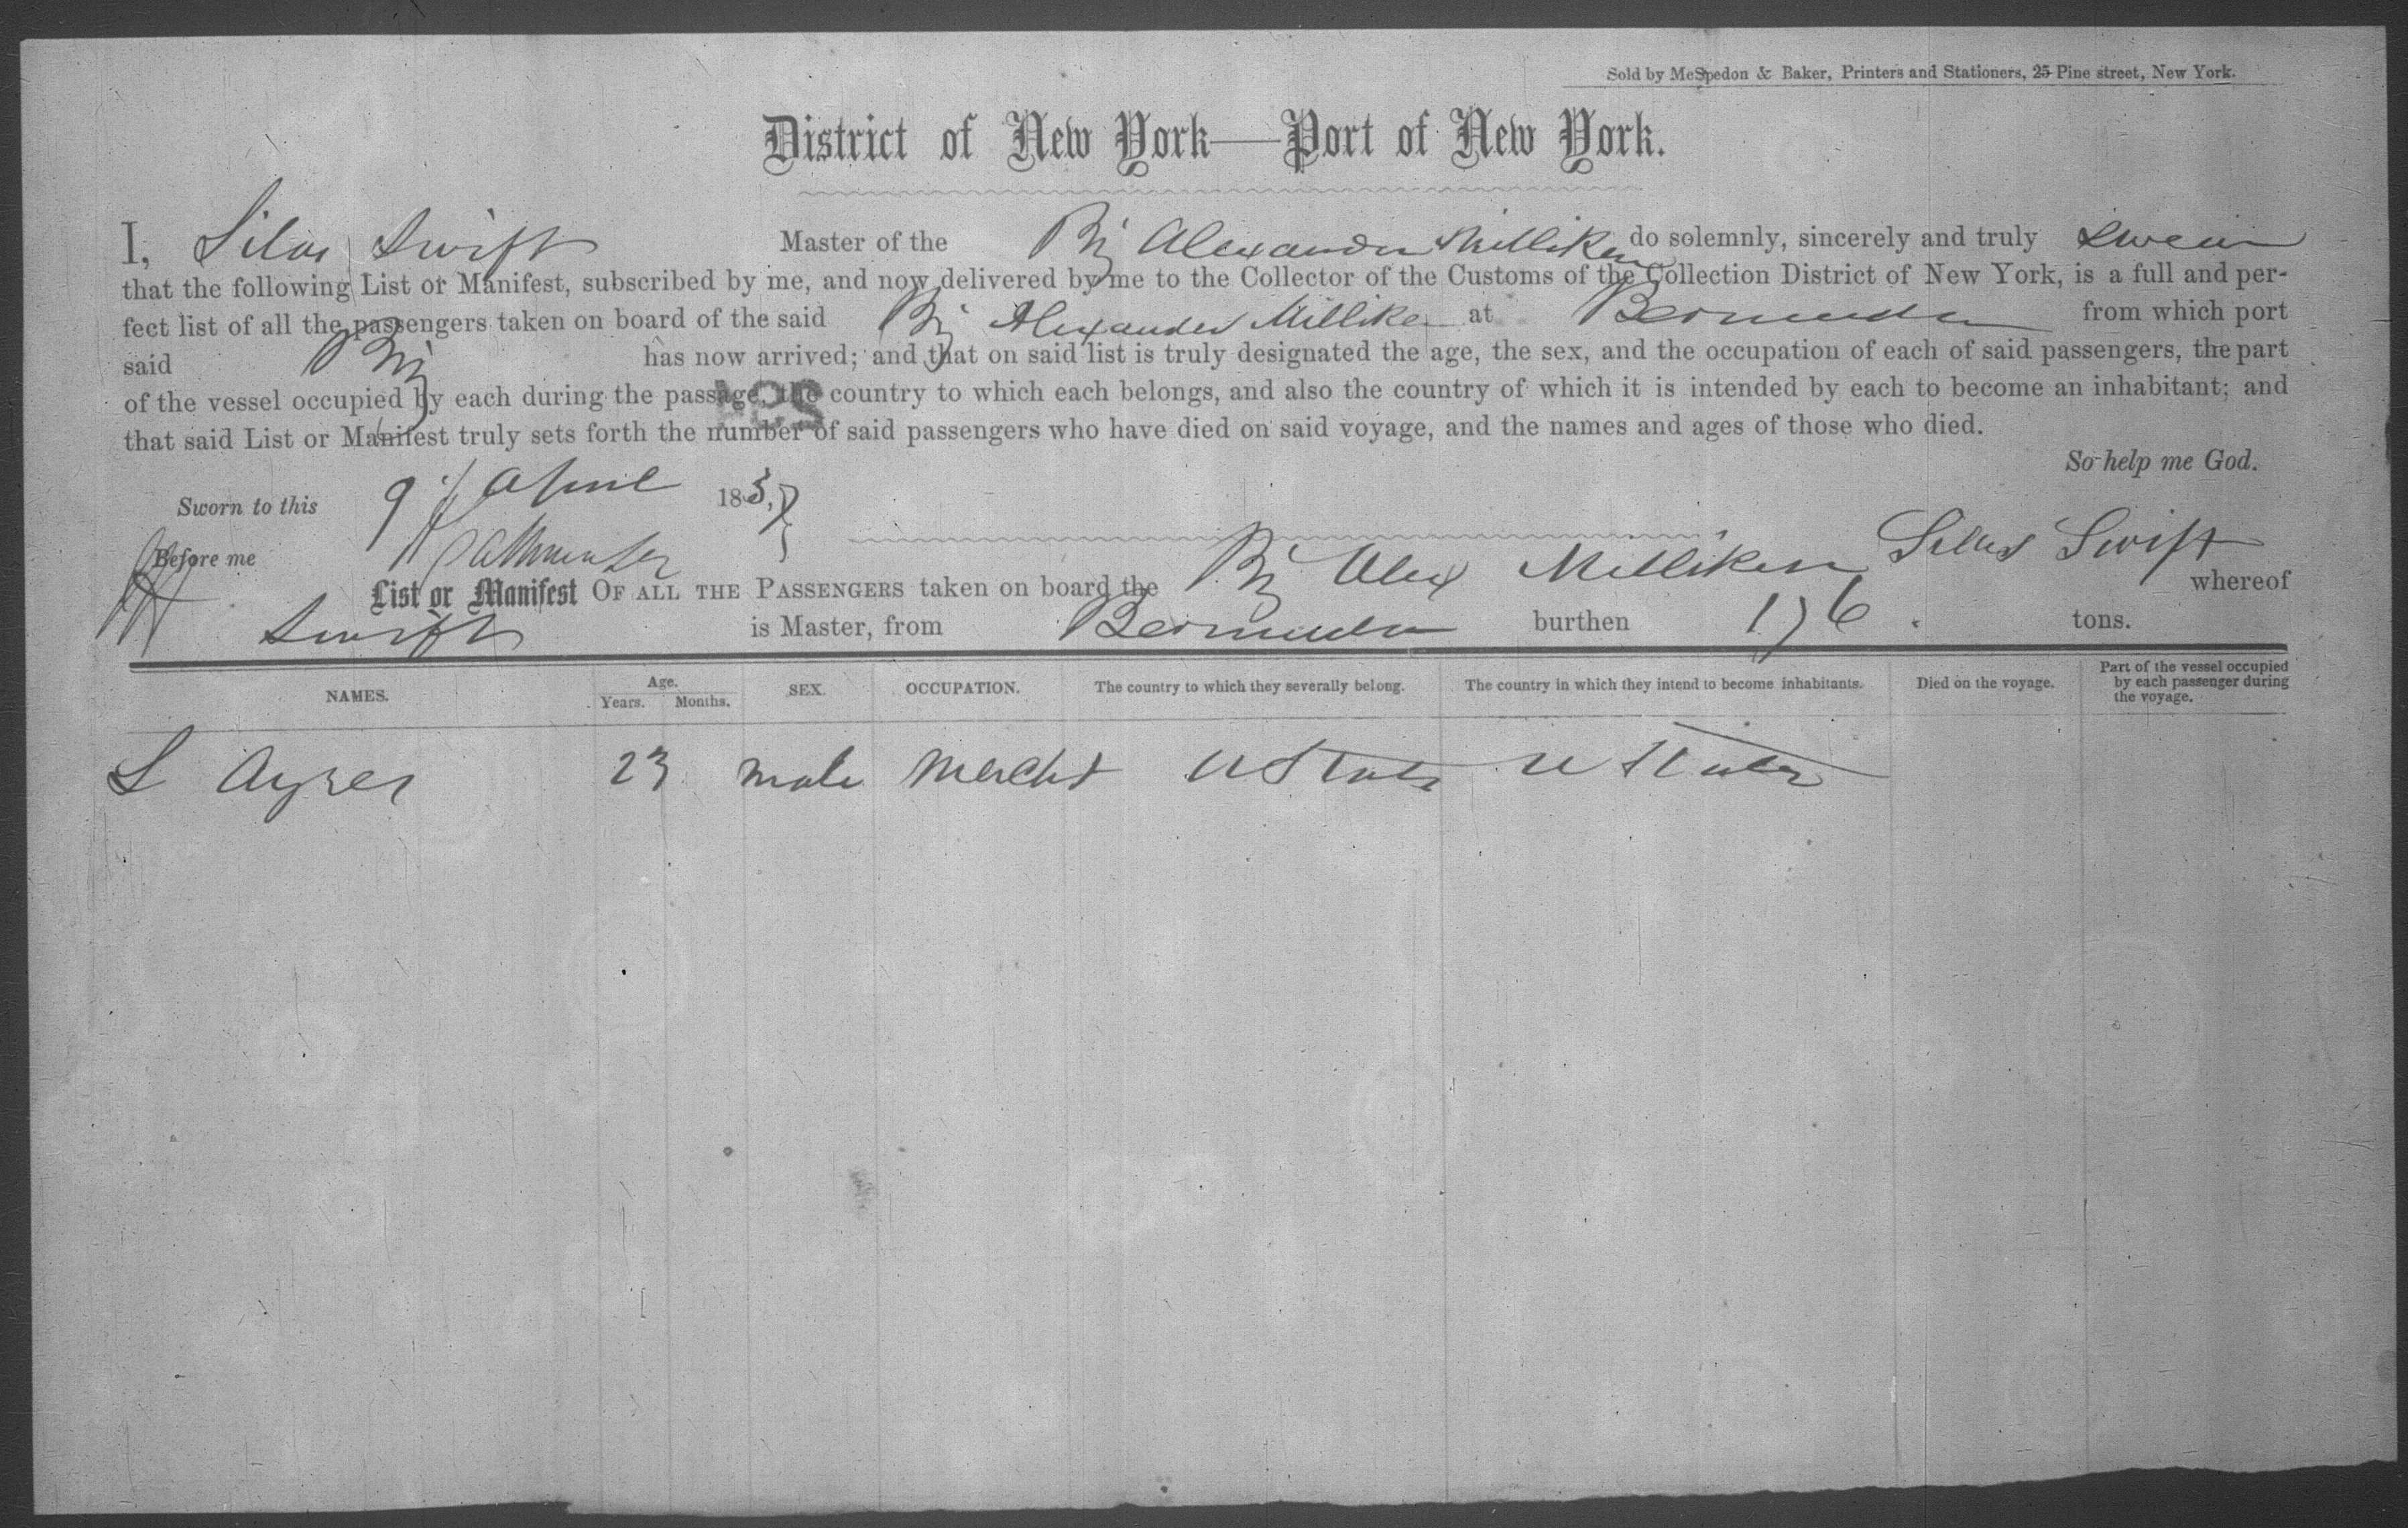 Sold by McSpedon & Baker, Printers and Stationers, 25 Pine street, New York.
District of New York—Port of New York.
I, Silas Swift Master of the Brig Alexander Milliken do solemnly, sincerely and truly Swear
that the following List or Manifest, subscribed by me, and now delivered by me to the Collector of the Customs of the Collection District of New York, is a full and per-
fect list of all the passengers taken on board of the said Brig Alexander Milliken at Bermuda from which port
said Brig has now arrived; and that on said list is truly designated the age, the sex, and the occupation of each of said passengers, the part
of the vessel occupied by each during the passage, the country to which each belongs, and also the country of which it is intended by each to become an inhabitant; and
that said List or Manifest truly sets forth the number of said passengers who have died on said voyage, and the names and ages of those who died.
So help me God.
Sworn to this 9 April 185
Before me Silas Swift
List or Manifest OF ALL THE PASSENGERS taken on board the Brig Alex Milliken whereof
Swift is Master, from Bermuda burthen 176 tons.
NAMES. Age. Years. Months. SEX. OCCUPATION. The country to which they severally belong. The country in which they intend to become inhabitants. Died on the voyage. Part of the vessel occupied by each passenger during the voyage.
S Ayres 23 male Mercht U States U States